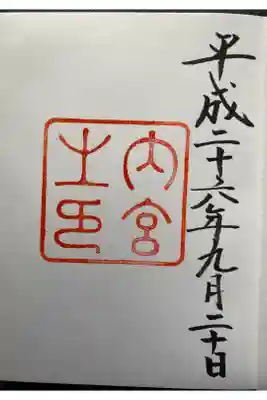 平成二十六年九月二十日
内宮
之印